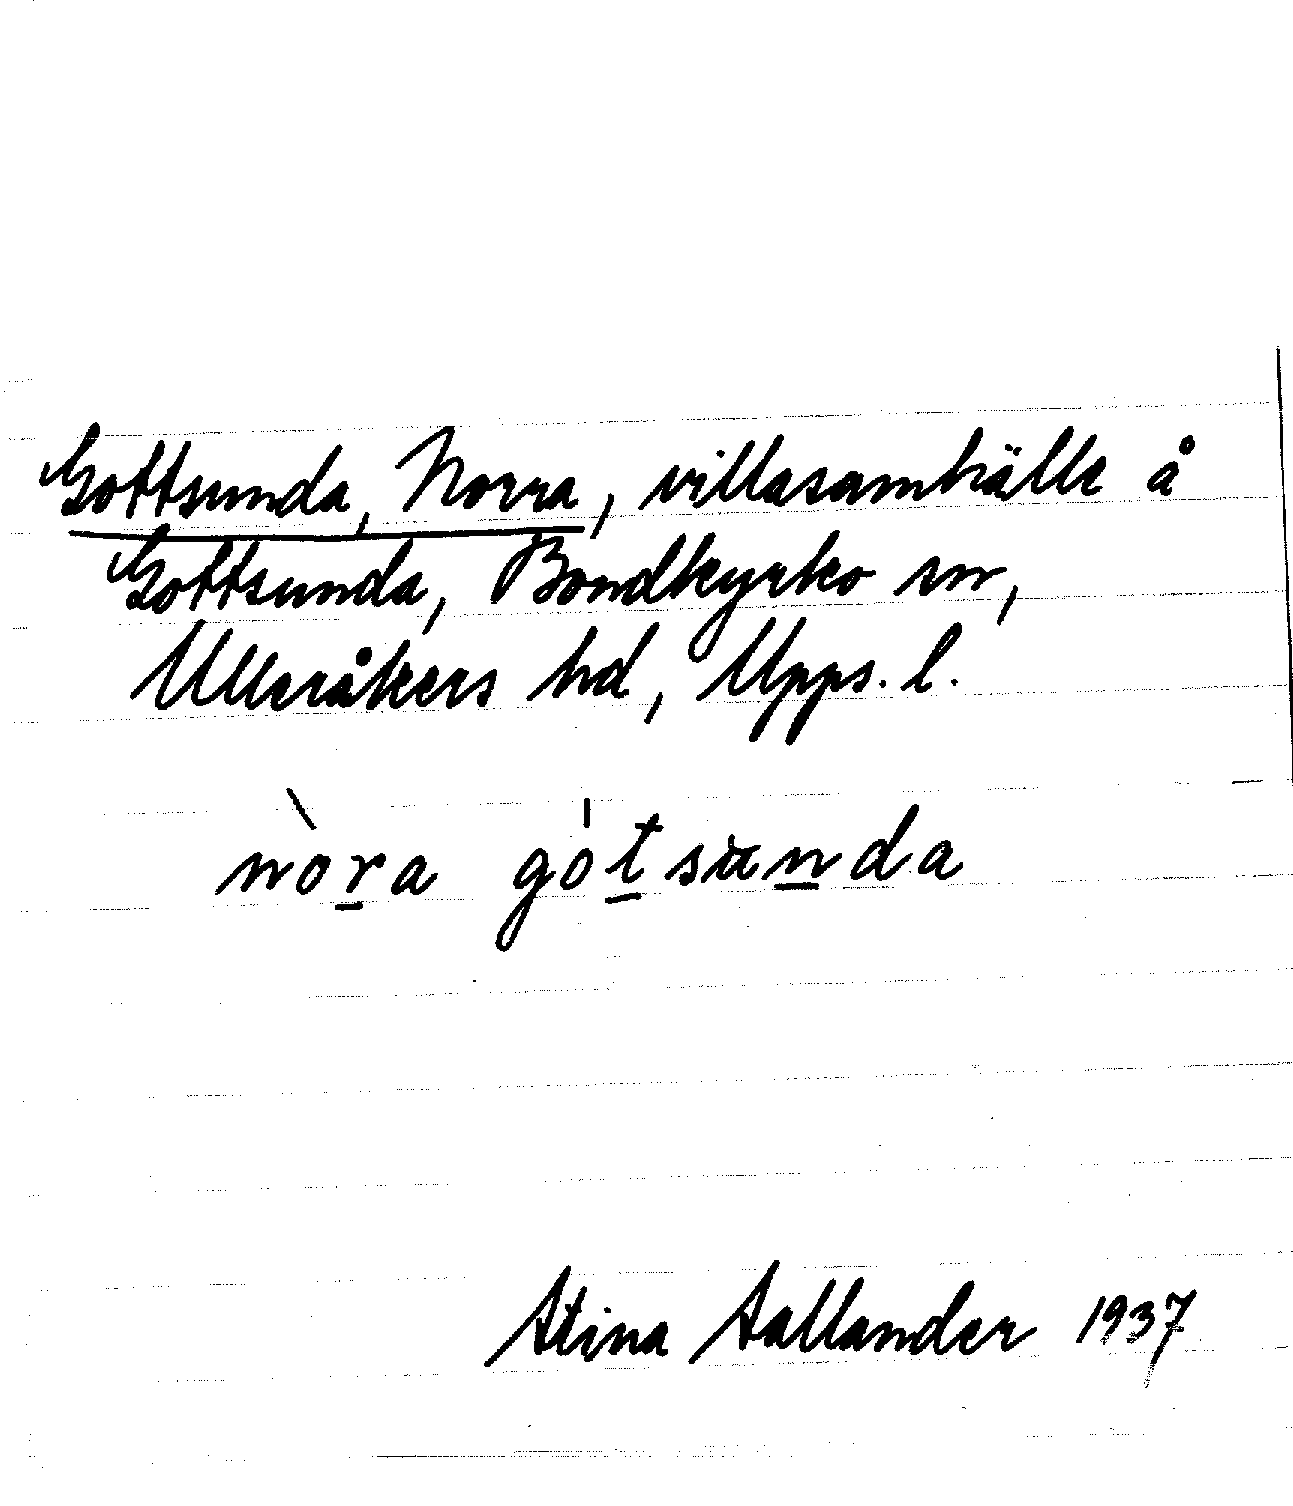 Gottsunda, Norra, villasamhälle å
Gottsunda, Bondkyrko sn,
Ulleråkers hd, Upps. l.
nòra gótsunda
Stina Sallander 1937